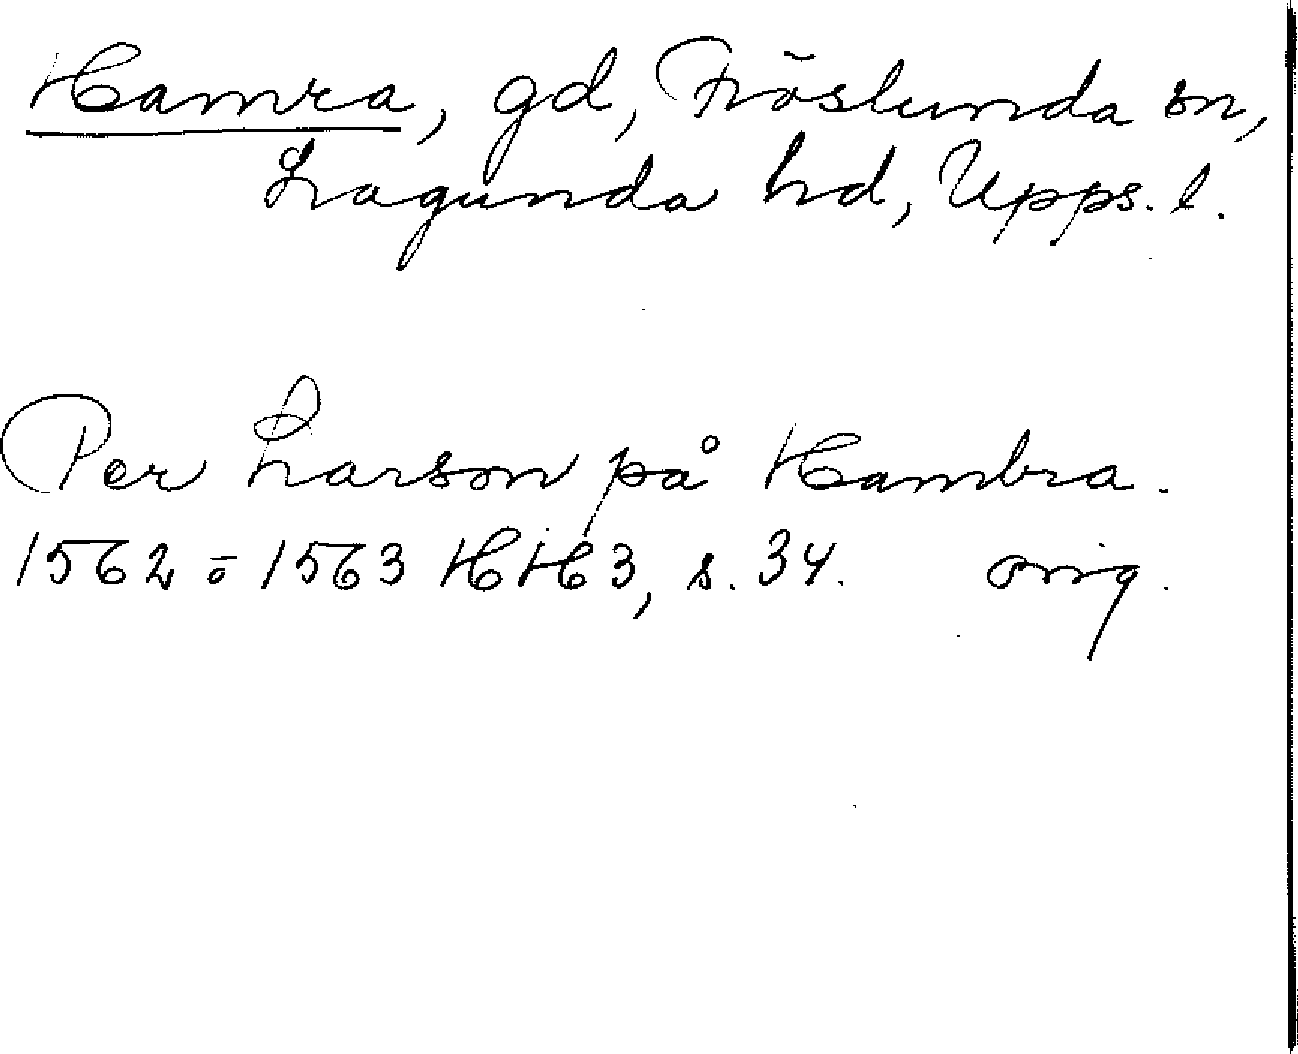 Hamra, gd, Fröslunda sn,
Lagunda hd, Upps. l.
Per Larson på Hambra.
1562 o 1563 HH 3, s. 34. orig.